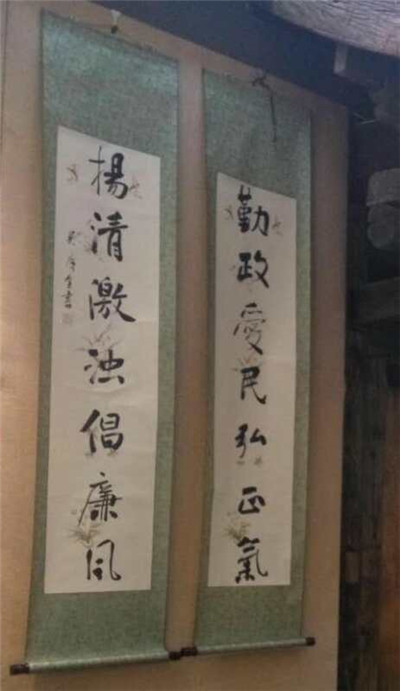 勤政愛民弘正氣
楊清激浊倡廉风